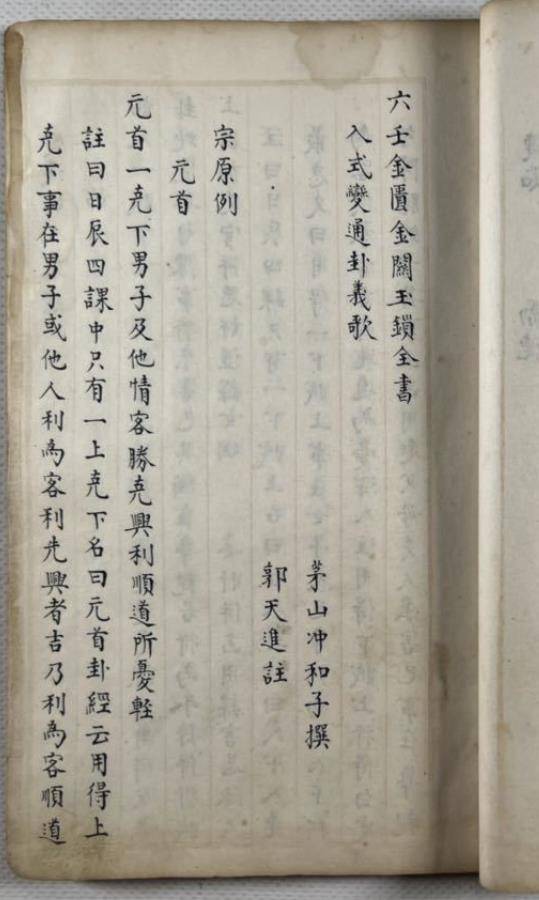 六壬金匱金闗玉鎖全書
入式變通卦義歌
茅山冲和子撰
郭天進註
宗原例
元首
元首一克下男子及他情客勝克興利順道所憂輊
註曰日辰四課中只有一上克下名曰元首卦經云用得上
克下事在男子或他人利為客利先興者吉乃利為客順道